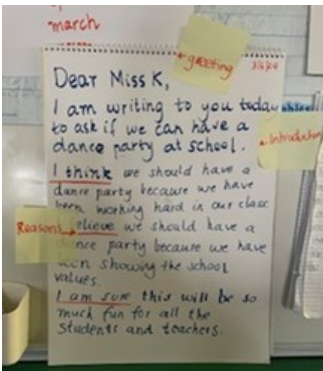 march
greeting
Dear Miss K,
I am writing to you today
to ask if we can have a
dance party at school.
Introduction
I think we should have a
dance party because we have
been working hard in our class
Reasons
believe we should have a
dance party because we have
been showing the school
values.
I am sure this will be so
much fun for all the
students and teachers.